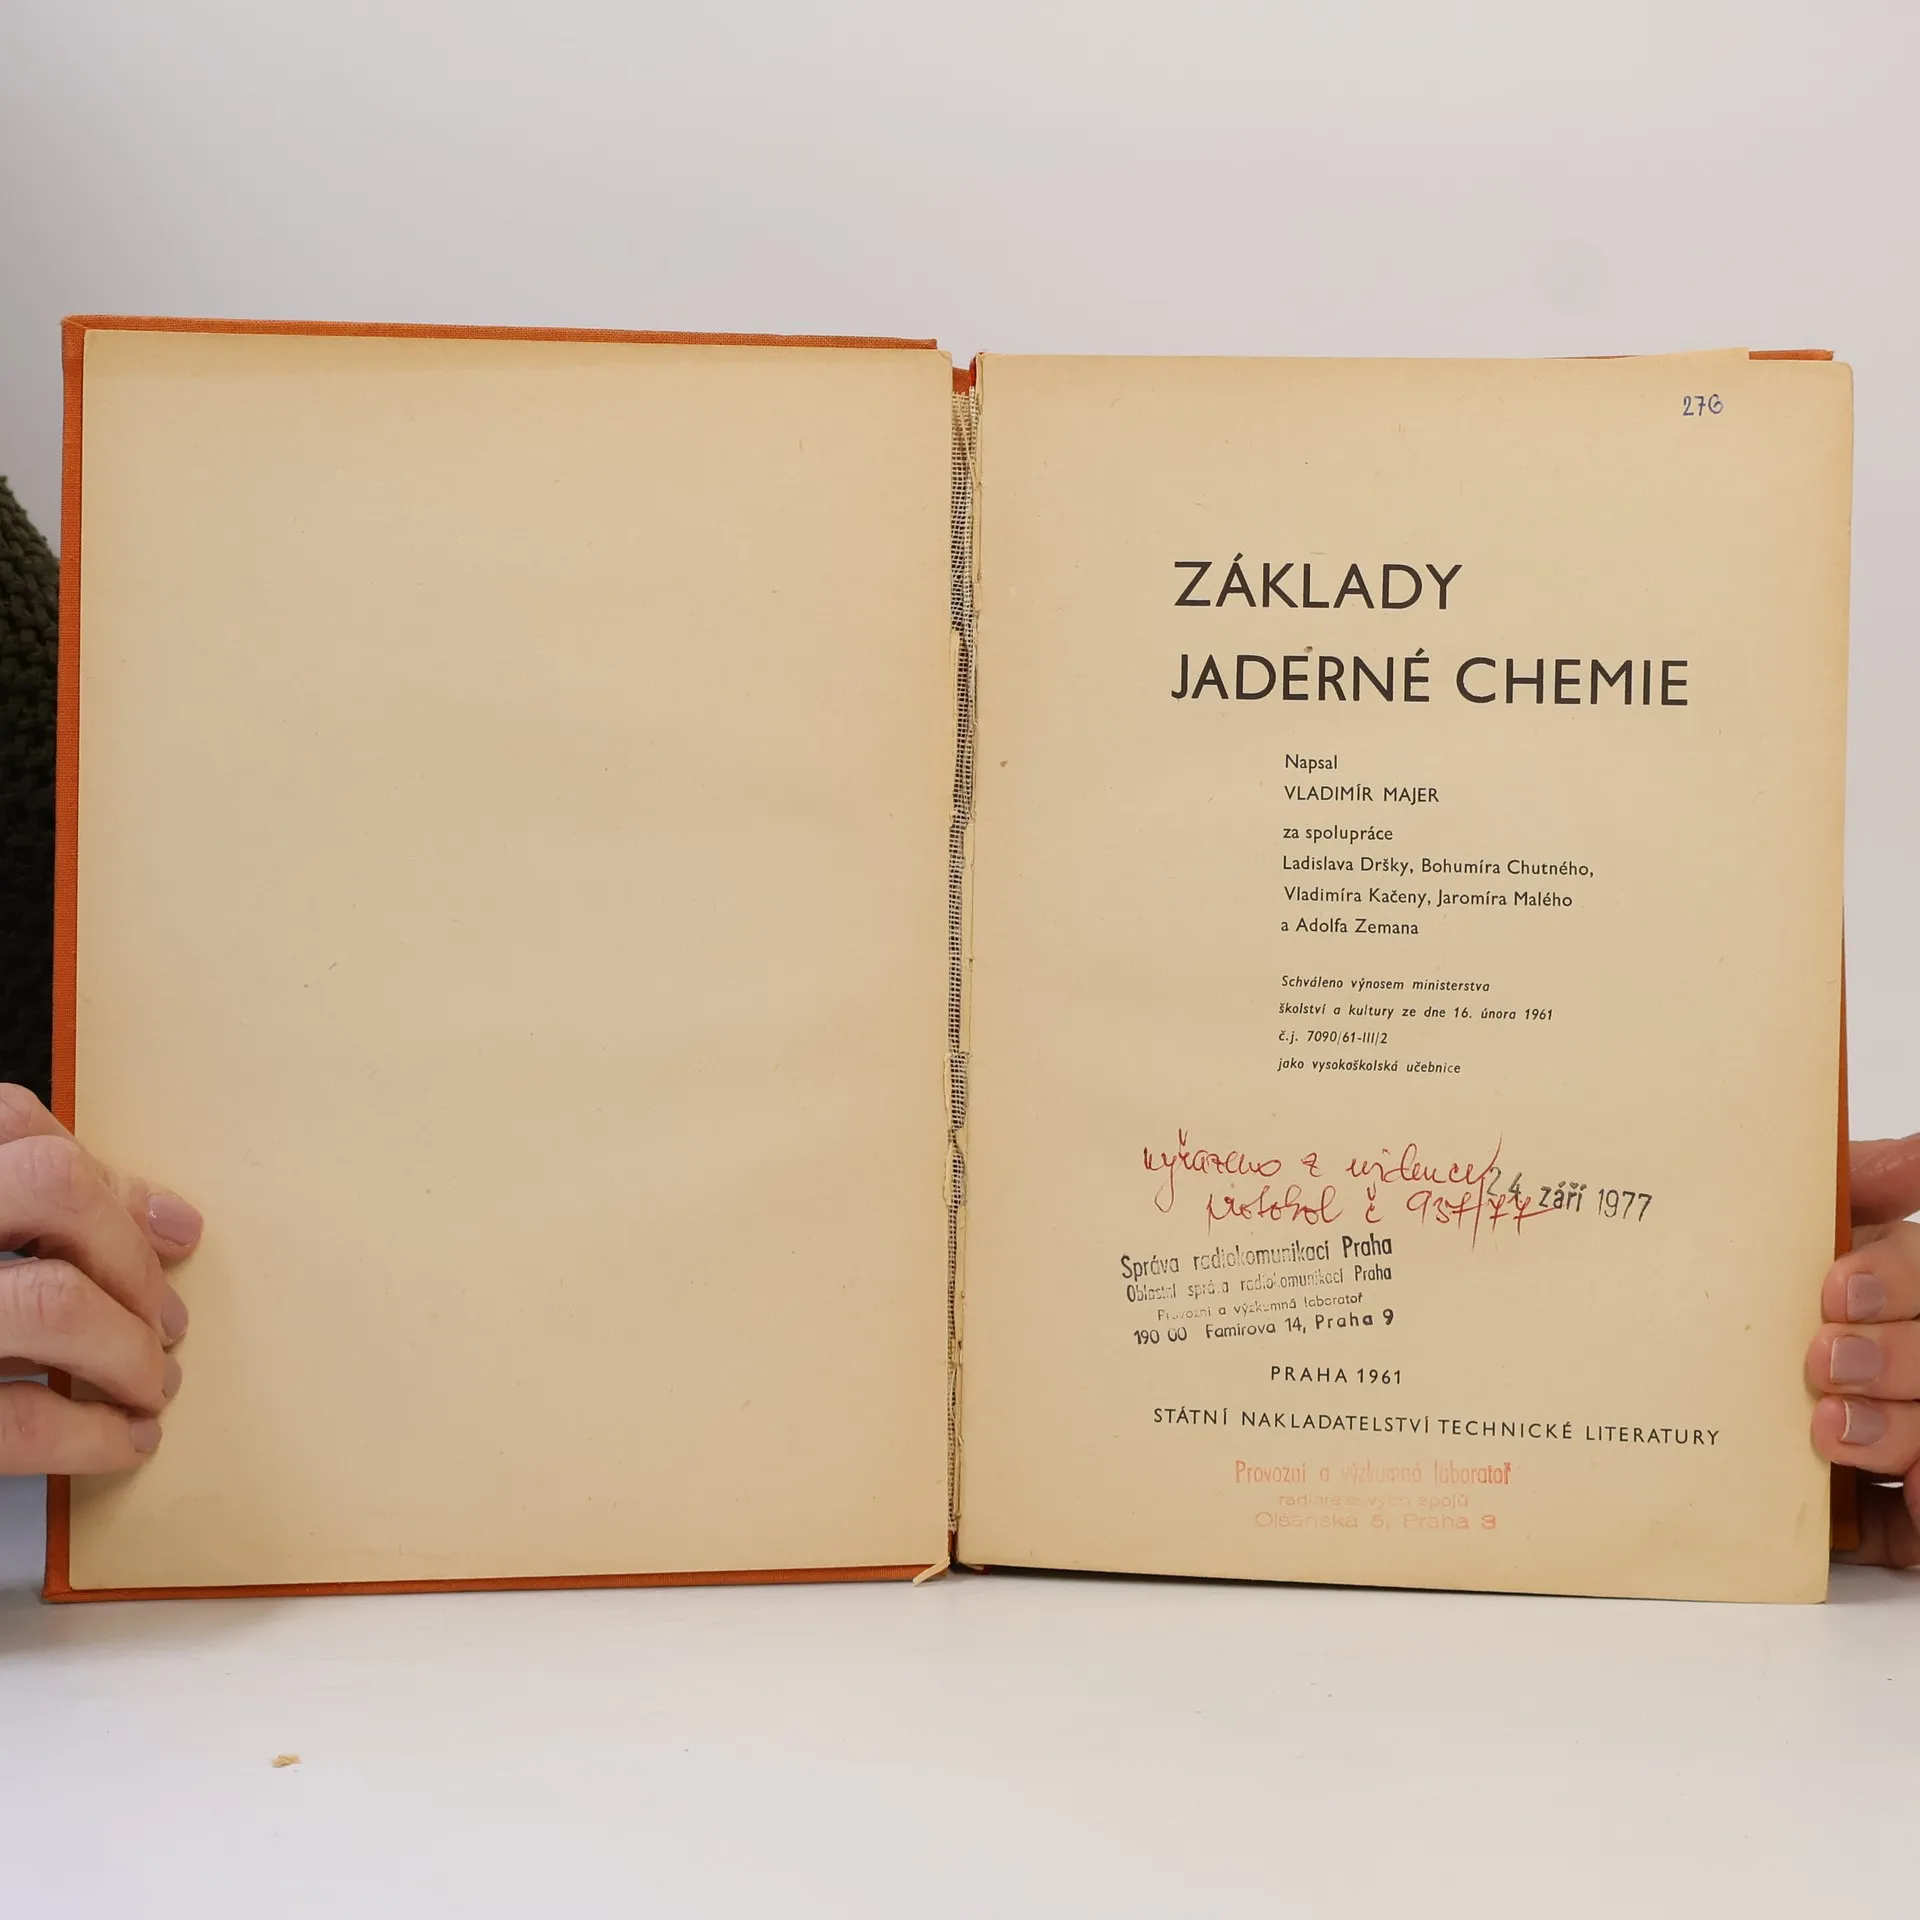 276
ZÁKLADY
JADERNÉ CHEMIE
Napsal
VLADIMÍR MAJER
za spolupráce
Ladislava Dršky, Bohumíra Chutného,
Vladimíra Kačeny, Jaromíra Malého
a Adolfa Zemana
Schváleno výnosem ministerstva
školství a kultury ze dne 16. února 1961
č.j. 7090/61-III/2
jako vysokoškolská učebnice
vyřazeno z evidence
24. září 1977
protokol č 937/77
Správa radiokomunikací Praha
Oblastní správa radiokomunikací Praha
Provozní a výzkumná laboratoř
190 00 Famírova 14, Praha 9
PRAHA 1961
STÁTNÍ NAKLADATELSTVÍ TECHNICKÉ LITERATURY
Provozní a výzkumná laboratoř
radioreléových spojů
Olšanská 5, Praha 3